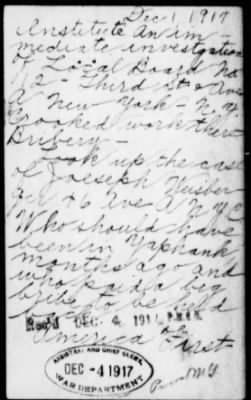 Dec 1, 1917
Institute An im-
mediate investigation
of Local Board No
112 - Third St & Ave
A New York - N.Y.
Crooked work there
Bribery -
Look up the case
of Joeseph
9th St & Ave A N.Y.C
Who should have
been in Yaphank
months ago and
who paid a big
bribe to be held
back
Rec'd DEC. 4, 1917
America First
ASSISTANT AND CHIEF CLERK,
DEC -4 1917
WAR DEPARTMENT